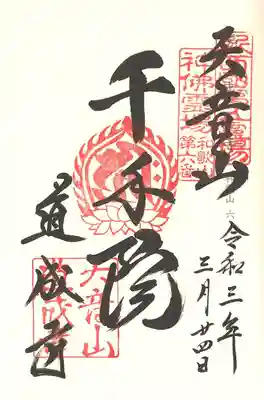 神佛霊場
和歌山
第六番
天音山
山 六
令和三年
三月廿四日
千手院
道成寺
天音山
道成寺